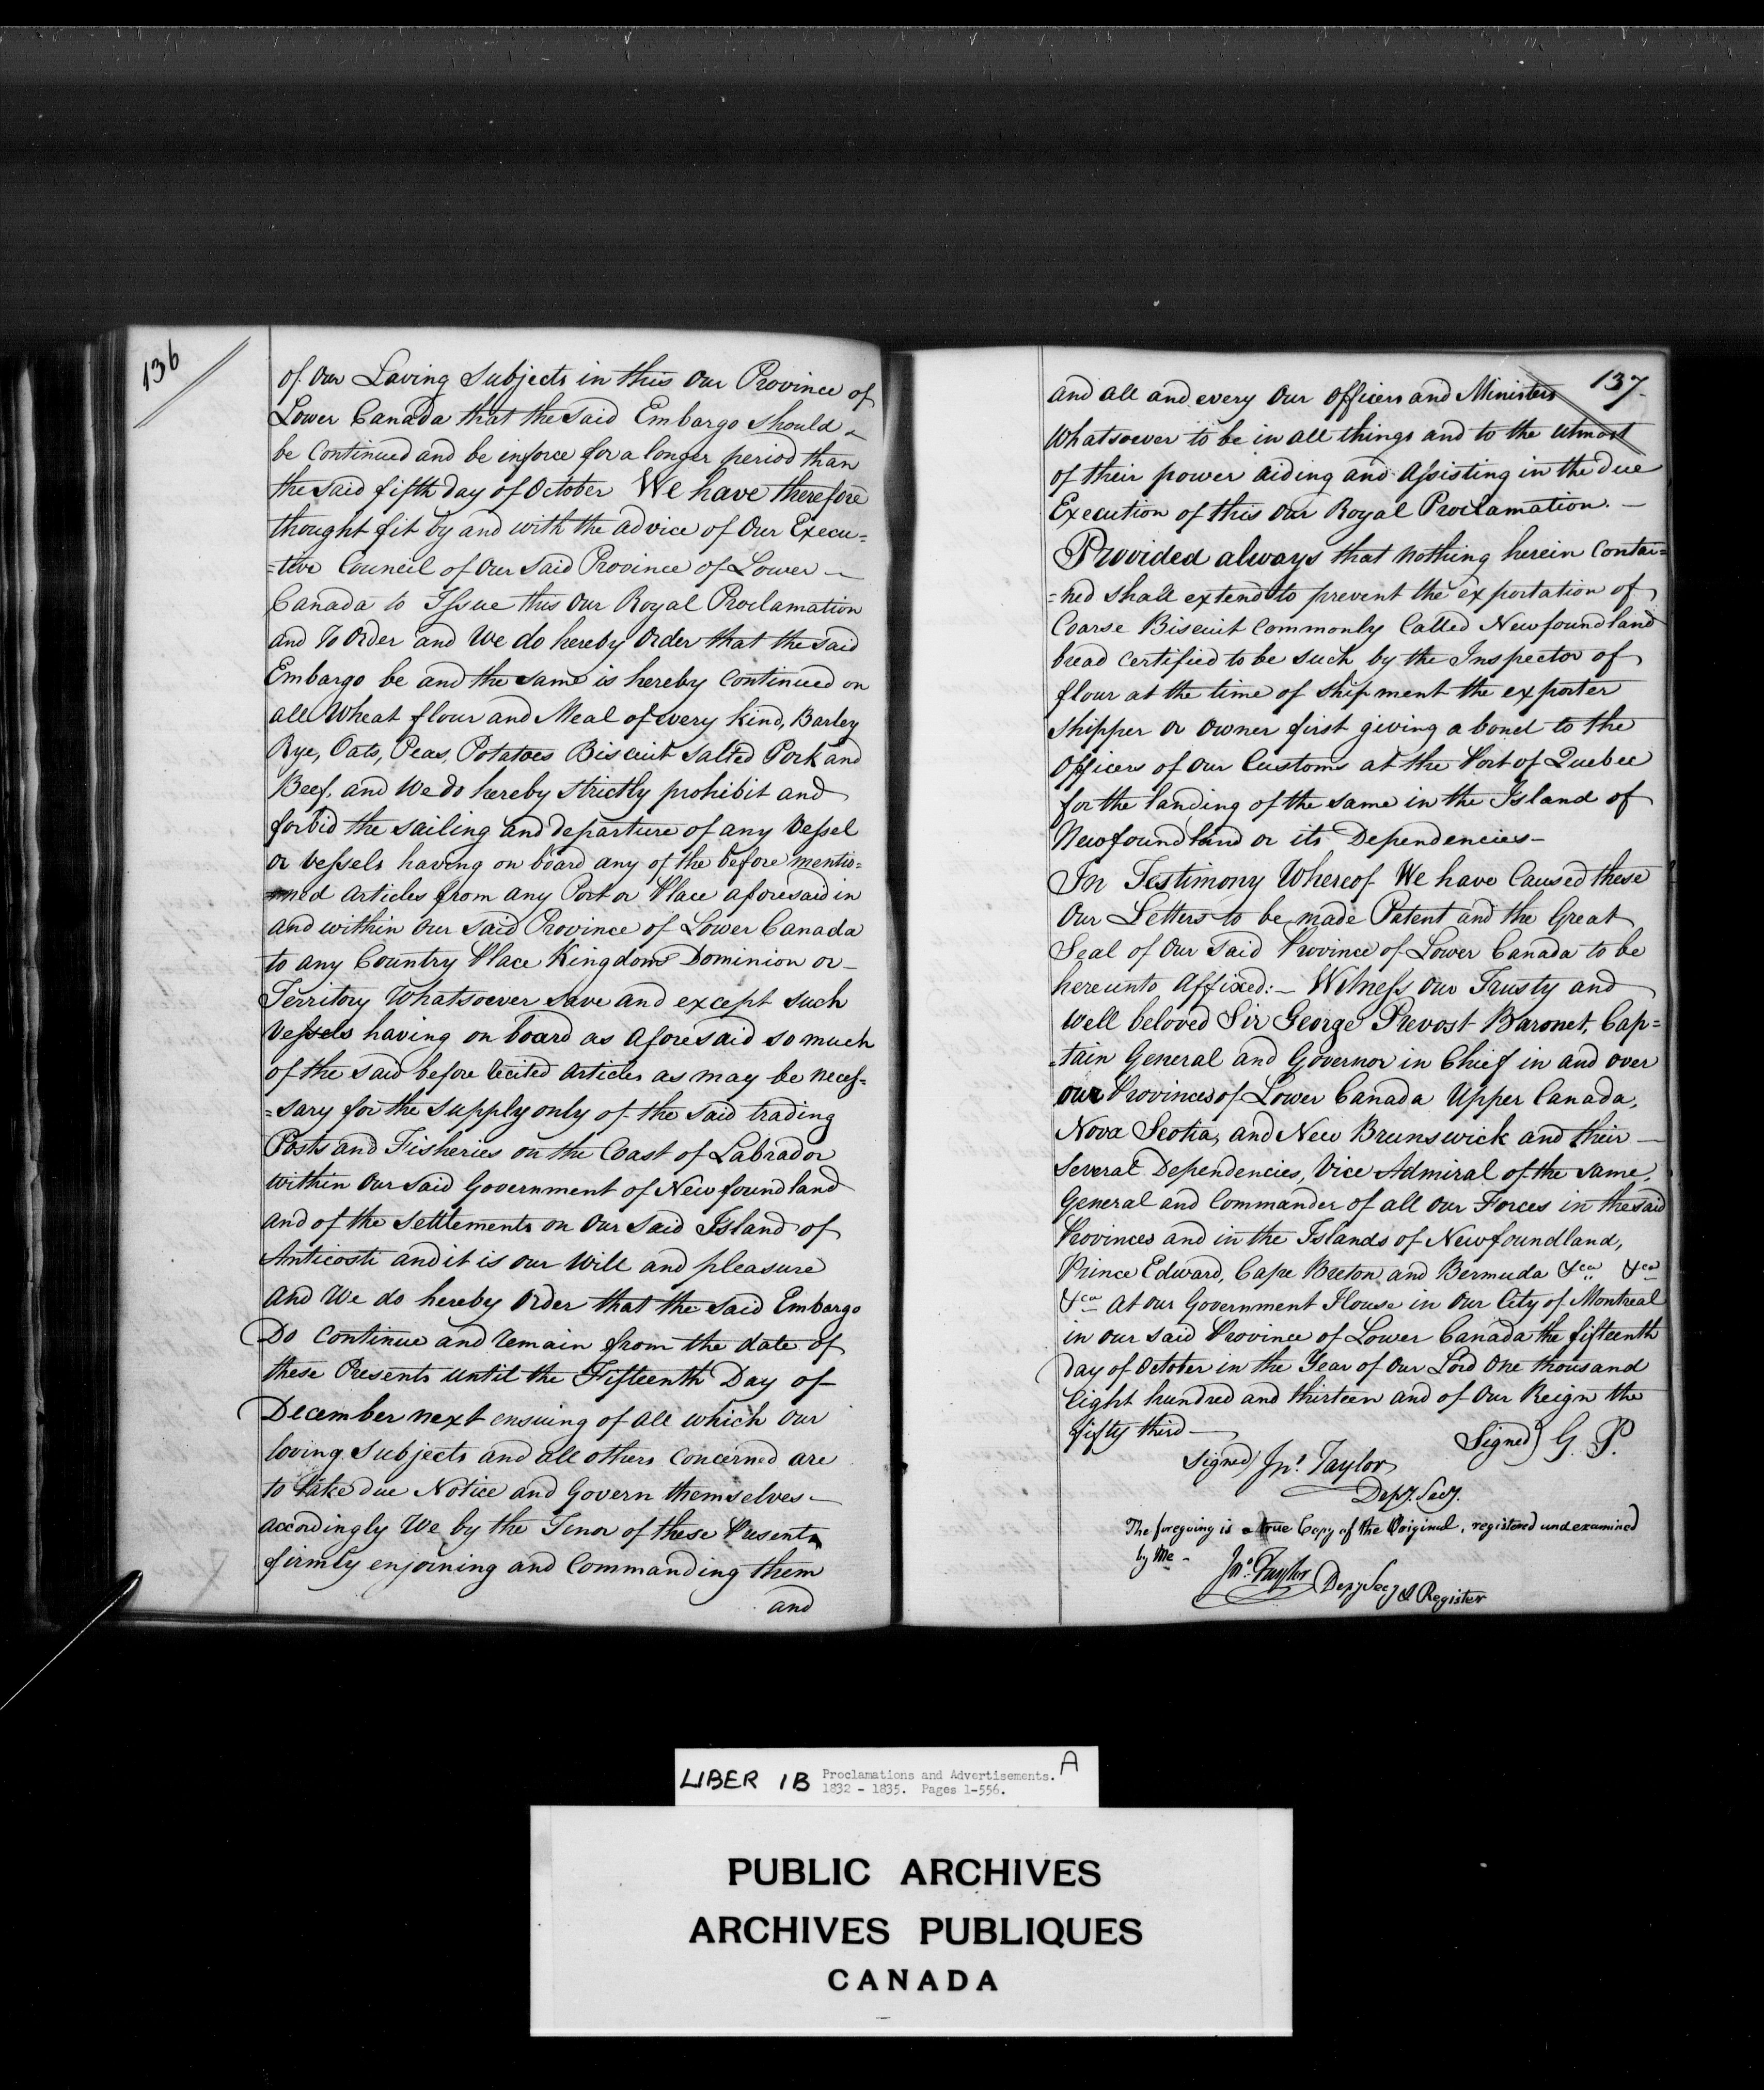 136
of Our Loving Subjects in this Our Province of
Lower Canada that the said Embargo should
be Continued and be inforce for a longer period than
the said fifth day of October We have therefore
thought fit by and with the advice of Our Execu=
=tive Council of Our said Province of Lower
Canada to Issue this Our Royal Proclamation
and To Order and We do hereby Order that the said
Embargo be and the same is hereby Continued on
all Wheat flour and Meal of every kind, Barley
Rye, Oats, Peas, Potatoes Biscuit Salted Pork and
Beef, and We do hereby strictly prohibit and
forbid the sailing and departure of any Vessel
or Vessels having on board any of the before mentio=
=ned articles from any Port or Place aforesaid in
and within Our said Province of Lower Canada
to any Country Place Kingdom Dominion or
Territory Whatsoever save and except such
Vessels having on board as Aforesaid so much
of the said before recited Articles as may be neces=
=sary for the supply only of the said trading
Posts and Fisheries on the Coast of Labrador
within Our said Government of Newfoundland
and of the Settlements on Our said Island of
Anticosti and it is our Will and pleasure
and We do hereby Order that the said Embargo
Do Continue and remain from the date of
these Presents until the Fifteenth Day of
December next ensuing of all which Our
loving Subjects and all others Concerned are
to take due Notice and Govern themselves
accordingly We by the Tenor of these Presents
firmly enjoining and Commanding them
and
137
and all and every Our Officers and Ministers
Whatsoever to be in all things and to the Utmost
of their power aiding and Assisting in the due
Execution of this Our Royal Proclamation.
Provided always that nothing herein Contai=
=ned shall extend to prevent the exportation of
Coarse Biscuit Commonly Called Newfoundland
bread Certified to be such by the Inspector of
flour at the time of Shipment the exporter
shipper or owner first giving a bond to the
Officers of Our Customs at the Port of Quebec
for the landing of the same in the Island of
Newfoundland or its Dependencies
In Testimony Whereof We have Caused these
Our Letters to be made Patent and the Great
Seal of Our said Province of Lower Canada to be
hereunto Affixed:— Witness Our Trusty and
Well beloved Sir George Prevost Baronet, Cap=
=tain General and Governor in Chief in and over
our Provinces of Lower Canada Upper Canada,
Nova Scotia, and New Brunswick and their
Several Dependencies, Vice Admiral of the same,
General and Commander of all Our Forces in the said
Provinces and in the Islands of Newfoundland,
Prince Edward, Cape Breton and Bermuda &ca &ca
&ca At our Government House in Our City of Montreal
in our said Province of Lower Canada the fifteenth
day of October in the Year of Our Lord One thousand
Eight hundred and thirteen and of Our Reign the
fifty third
Signed) G. P.
Signed) Jno. Taylor
Depy. Secy.
The foregoing is a true Copy of the Original, registered and examined
by Me
Jno. Taylor Depy Secy & Register
LIBER 1B Proclamations and Advertisements. A
1832 - 1835. Pages 1-556.
PUBLIC ARCHIVES
ARCHIVES PUBLIQUES
CANADA